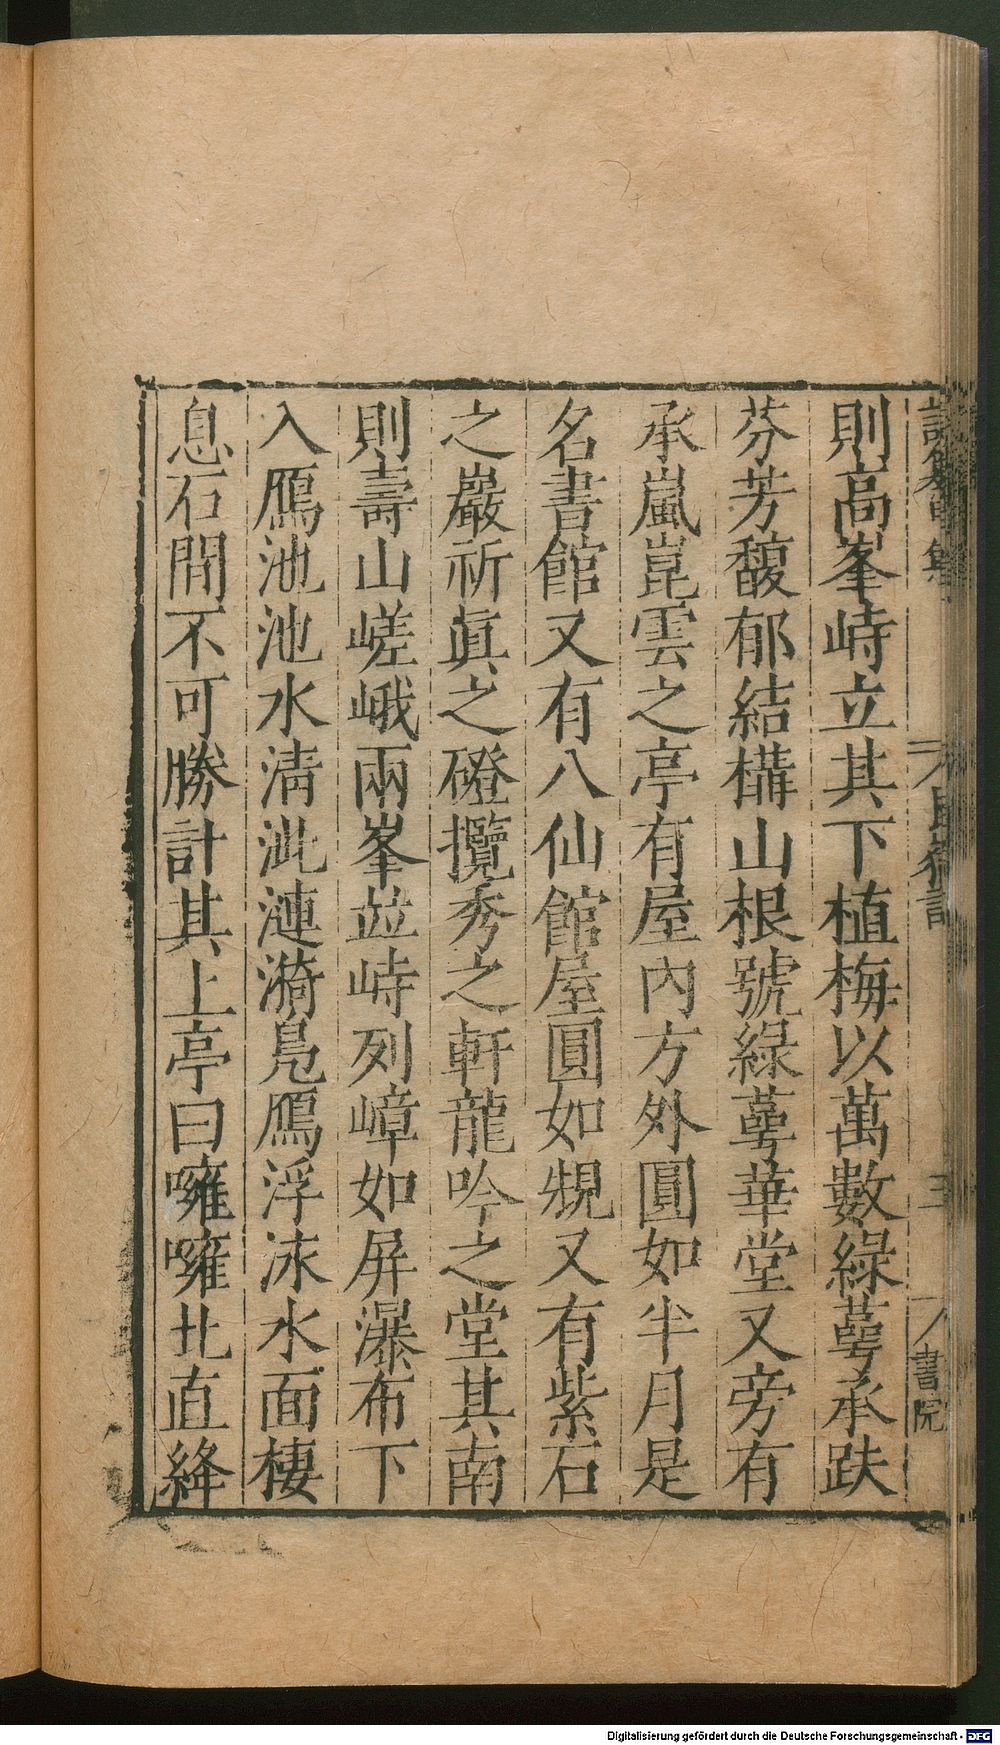 則高峯峙立其下植梅以萬數綠萼承趺
芬芳馥郁結構山根號綠萼華堂又旁有
承嵐崑雲之亭有屋內方外圓如半月是
名書館又有八仙館屋圓如規又有紫石
之巖祈眞之磴攬秀之軒龍吟之堂其南
則壽山嵯峨兩峯並峙列嶂如屏瀑布下
入鴈池池水清泚漣漪鳧鴈浮泳水面棲
息石間不可勝計其上亭曰噰噰北直絳
三
書院
Digitalisierung gefördert durch die Deutsche Forschungsgemeinschaft - DFG